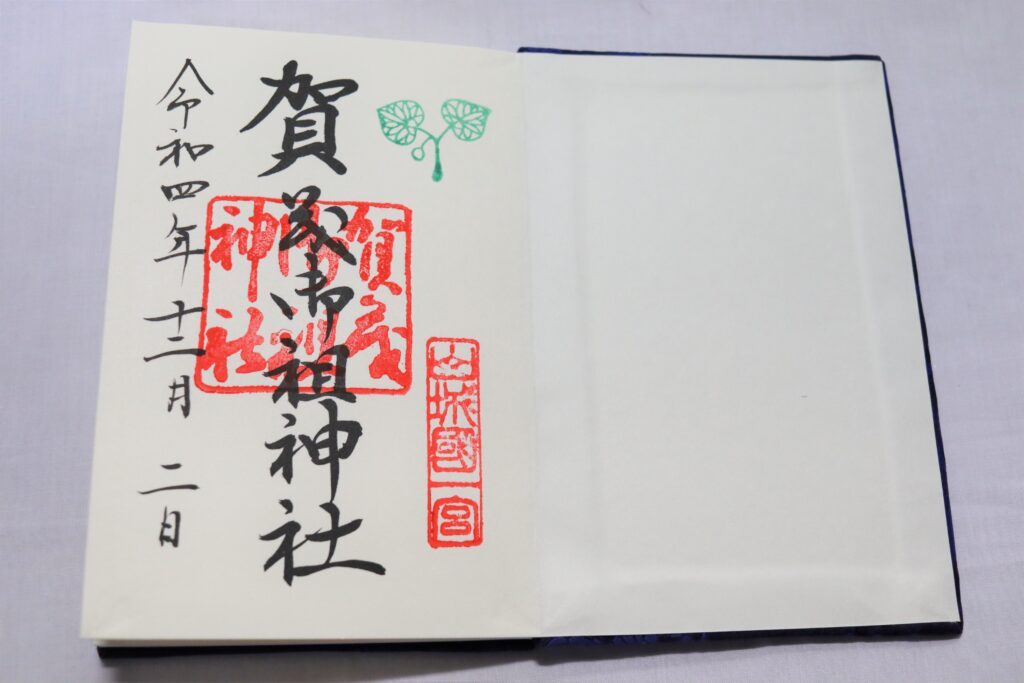 山城國一宮
賀茂御祖神社
賀茂御祖神社
令和四年十二月二日